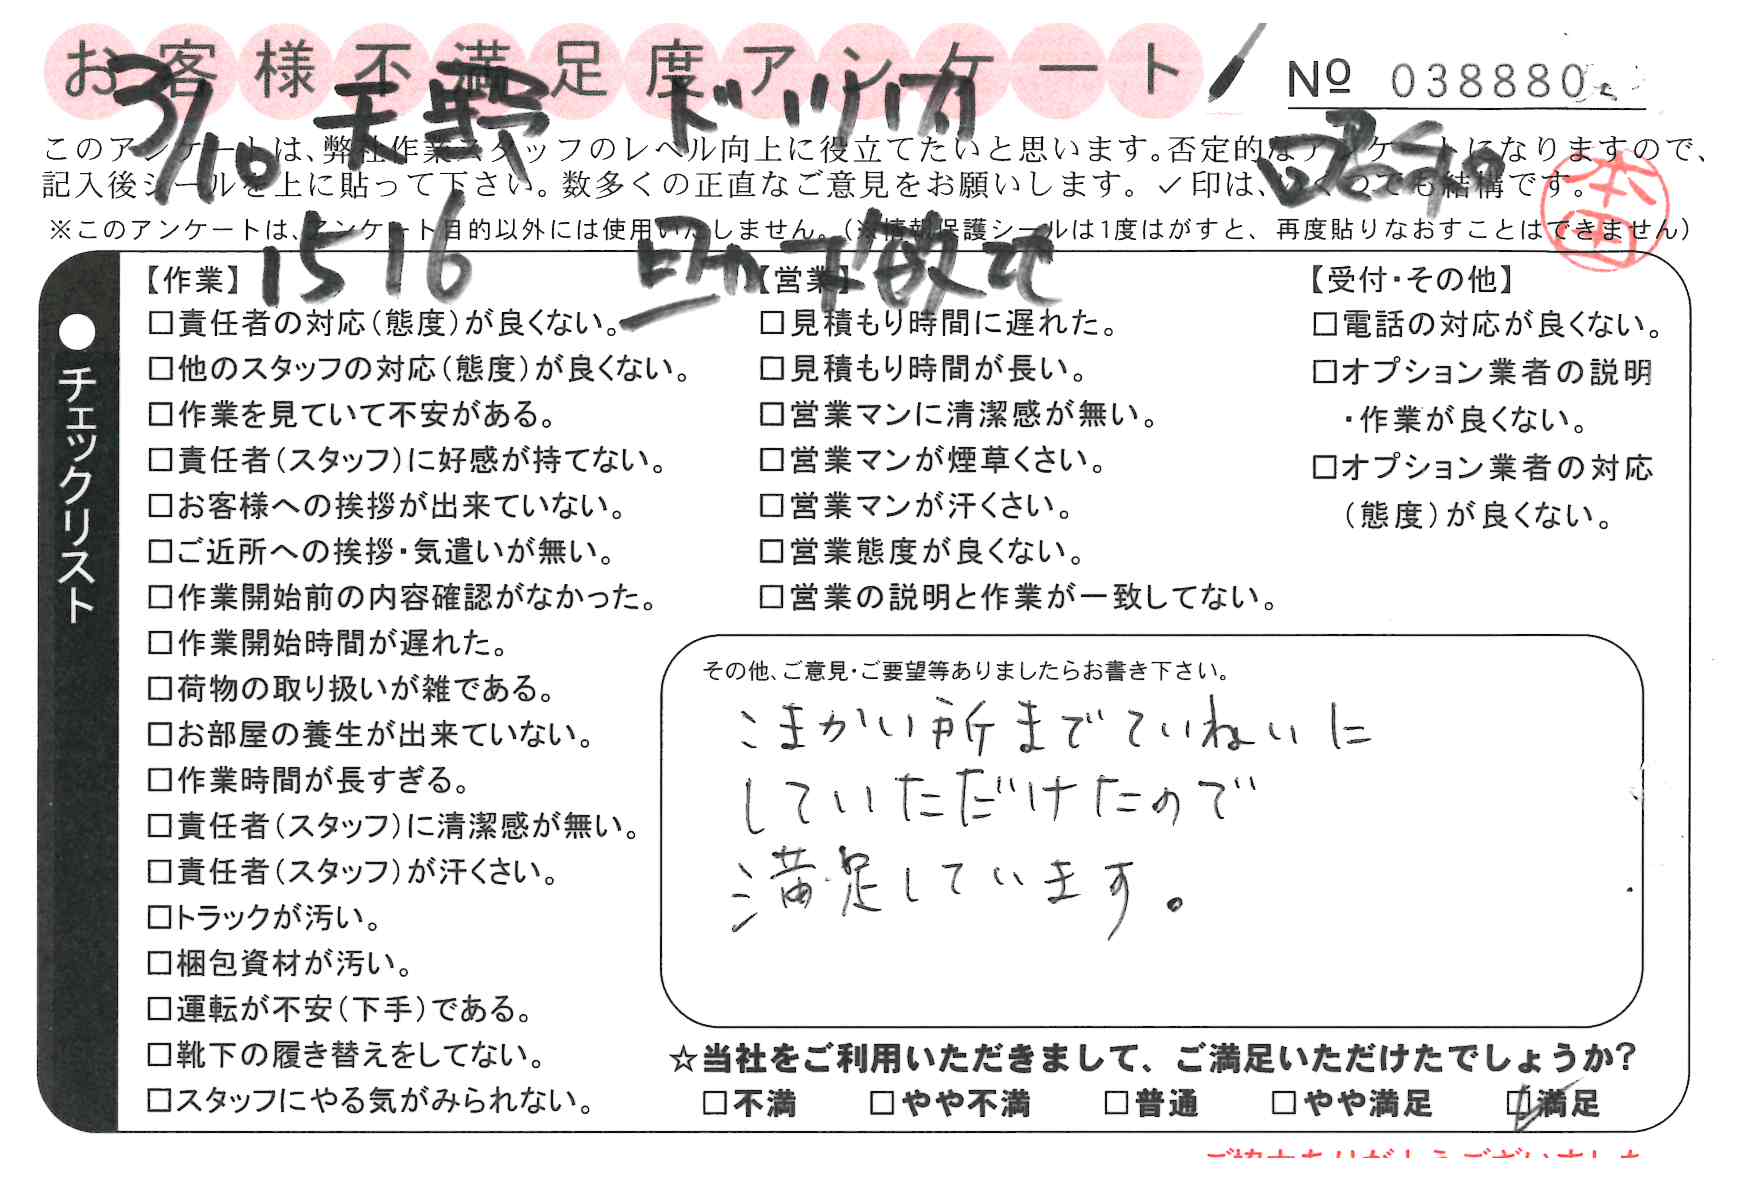 お客様不満足度アンケート
№ 038880
3/10 天野
このアンケートは、弊社作業スタッフのレベル向上に役立てたいと思います。否定的なアンケートになりますので、
記入後シールを上に貼って下さい。数多くの正直なご意見をお願いします。✓印は、いくつでも結構です。
※このアンケートは、アンケート目的以外には使用いたしません。(※情報保護シールは1度はがすと、再度貼りなおすことはできません)
1516
●チェックリスト
【作業】
□責任者の対応(態度)が良くない。
□他のスタッフの対応(態度)が良くない。
□作業を見ていて不安がある。
□責任者(スタッフ)に好感が持てない。
□お客様への挨拶が出来ていない。
□ご近所への挨拶・気遣いが無い。
□作業開始前の内容確認がなかった。
□作業開始時間が遅れた。
□荷物の取り扱いが雑である。
□お部屋の養生が出来ていない。
□作業時間が長すぎる。
□責任者(スタッフ)に清潔感が無い。
□責任者(スタッフ)が汗くさい。
□トラックが汚い。
□梱包資材が汚い。
□運転が不安(下手)である。
□靴下の履き替えをしてない。
□スタッフにやる気がみられない。
【営業】
□見積もり時間に遅れた。
□見積もり時間が長い。
□営業マンに清潔感が無い。
□営業マンが煙草くさい。
□営業マンが汗くさい。
□営業態度が良くない。
□営業の説明と作業が一致してない。
【受付・その他】
□電話の対応が良くない。
□オプション業者の説明
・作業が良くない。
□オプション業者の対応
(態度)が良くない。
その他、ご意見・ご要望等ありましたらお書き下さい。
こまかい所までていねいに
していただけたので
満足しています。
☆当社をご利用いただきまして、ご満足いただけたでしょうか?
□不満 □やや不満 □普通 □やや満足 ☑満足
ご協力ありがとうございました